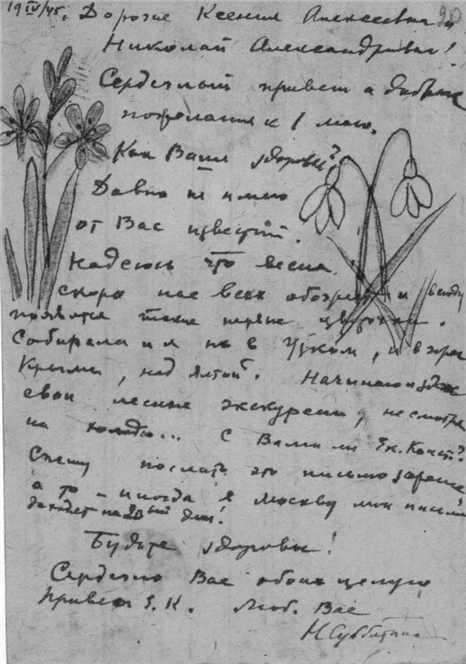 19 IV/45. Дорогие Ксения Алексеевна и
Николай Александрович!
Сердечный привет и добрые
пожелания к 1 мая.
Как Ваше здоровье?
Давно не имею
от Вас известий.
Надеюсь что весна
скоро нас всех обогреет и всюду
появятся такие первые цветочки.
Собирала и я их в Узком, и в горах
Крыма, над Ялтой. Начинаю и здесь
свои лесные экскурсии, несмотря
на холода... С Вами ли Ек. Конст.?
Спешу послать это письмо заранее
а то – иногда в Москву мои письма
доходят на 20ый день!
Будьте здоровы!
Сердечно Вас обоих целую
Привет Е. К. Люб. Вас
Н. Субботина